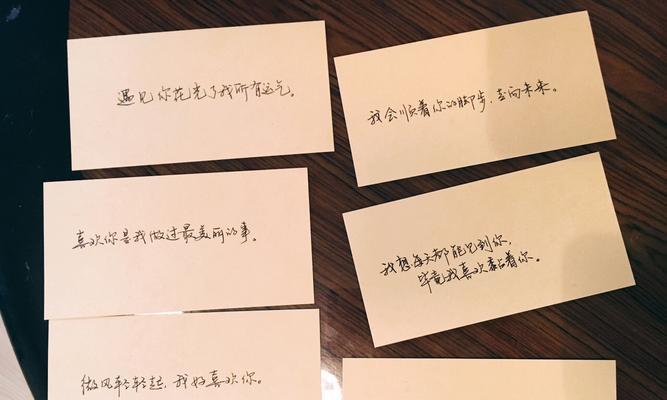 遇见你花光了我所有运气。
我会顺着你的脚步，去向未来。
喜欢你是我做过最美丽的事。
我想每天都能见到你，
毕竟我喜欢黏着你。
微风轻轻起，我好喜欢你。